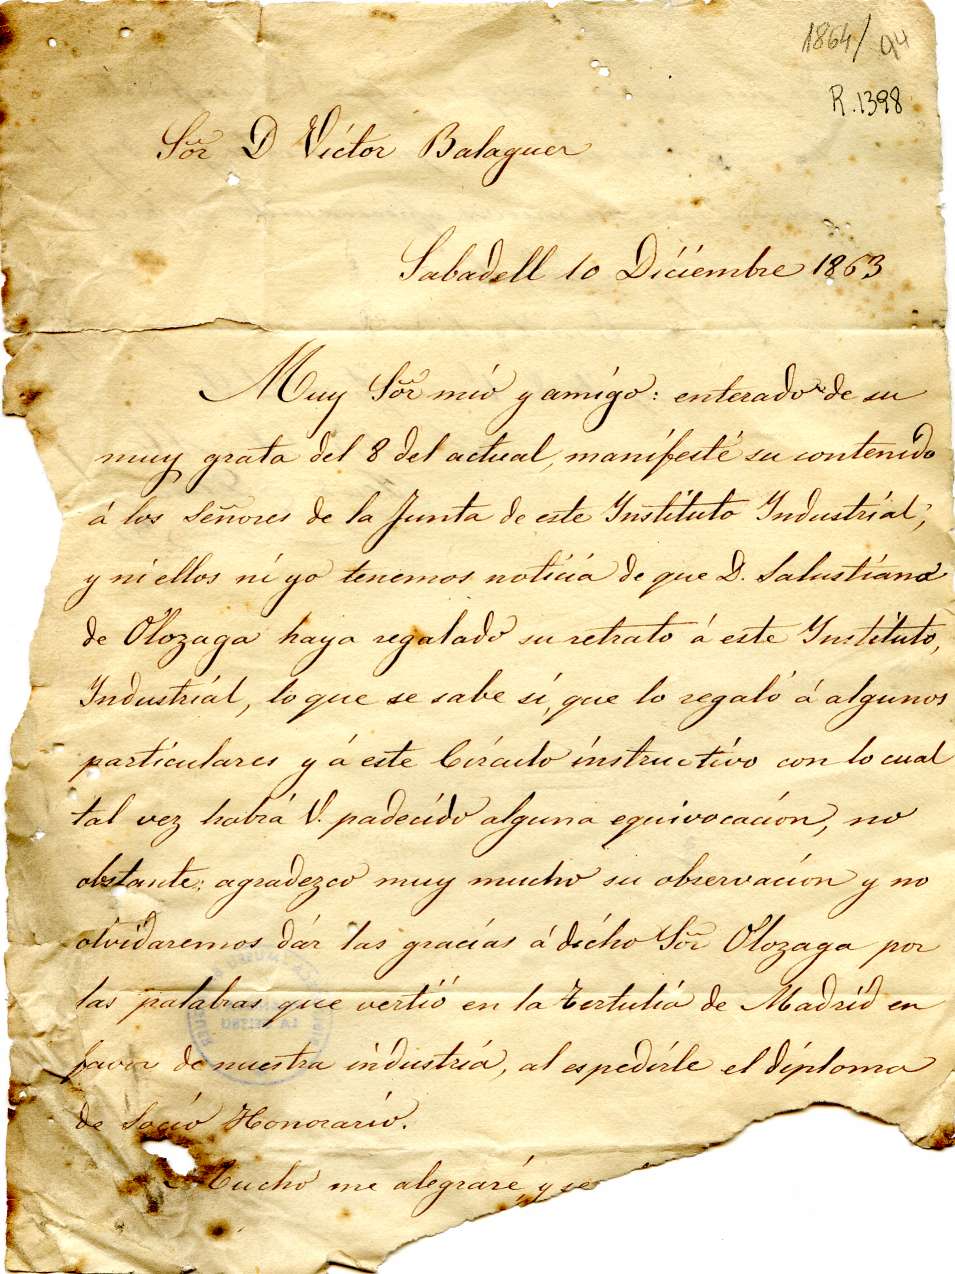 1864/94
R.1398
Sõr D Víctor Balaguer
Sabadell 10 Diciembre 1863
Muy Sõr mio y amigo: enterado de su
muy grata del 8 del actual, manifesté su contenido
á los Señores de la Junta de este Instituto Industrial;
y ni ellos ni yo tenemos noticia de que D. Salustiano
de Olózaga haya regalado su retrato á este Instituto,
Industrial, lo que se sabe si, que lo regaló á algunos
particulares y á este Circulo instructivo con lo cual
tal vez habrá V. padecido alguna equivocacion, no
obstante: agradezco muy mucho su observacion y no
olvidaremos dár las gracias á dicho Sõr Olozaga por
las palabras que vertió en la Tertulia de Madrid en
favor de nuestra industria, al espedirle el diploma
de Socio Honorario.
Mucho me alegraré, y se